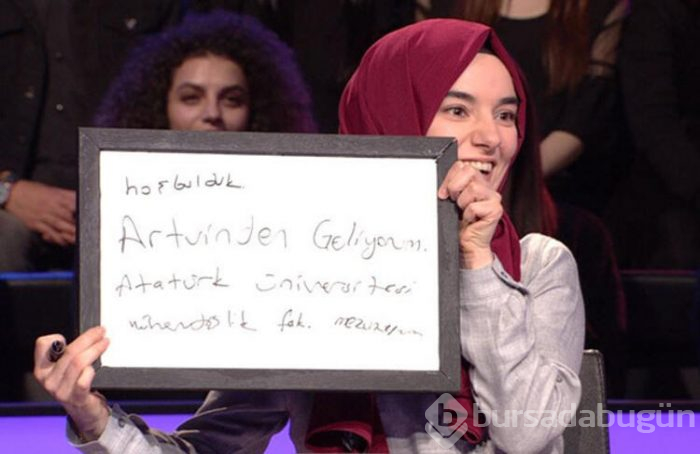 hoşbulduk.
Artvinden Geliyorum.
Atatürk üniversitesi
mühendislik fak. mezunuyum
b bursadabugün